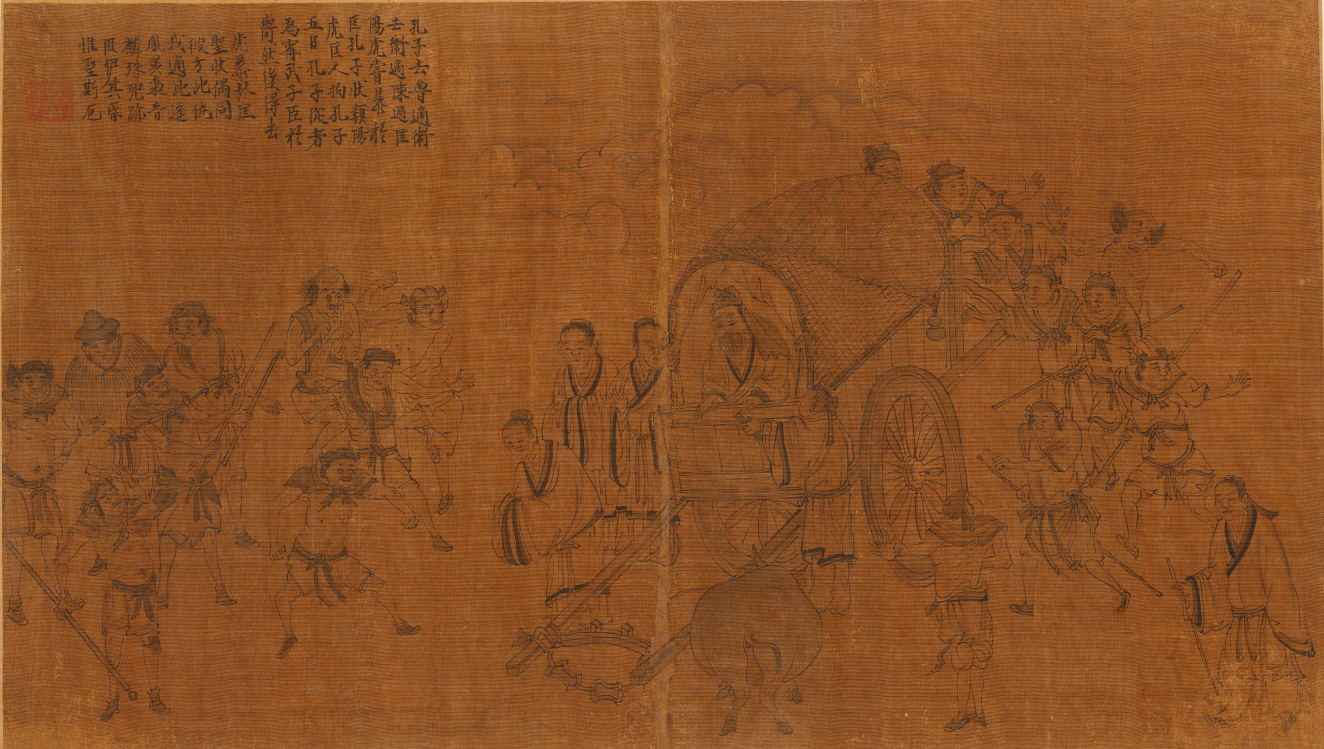 孔子去魯適衛
去衛適陳過匡
陽虎嘗暴於
匡孔子狀類陽
虎匡人拘孔子
五日孔子從者
為甯武子臣於
衛然後得去
虎暴於匡
聖狀偶同
彼方此仇
我適此逢
鳳異梟音
麟殊兕跡
匪伊其昏
惟聖斯厄